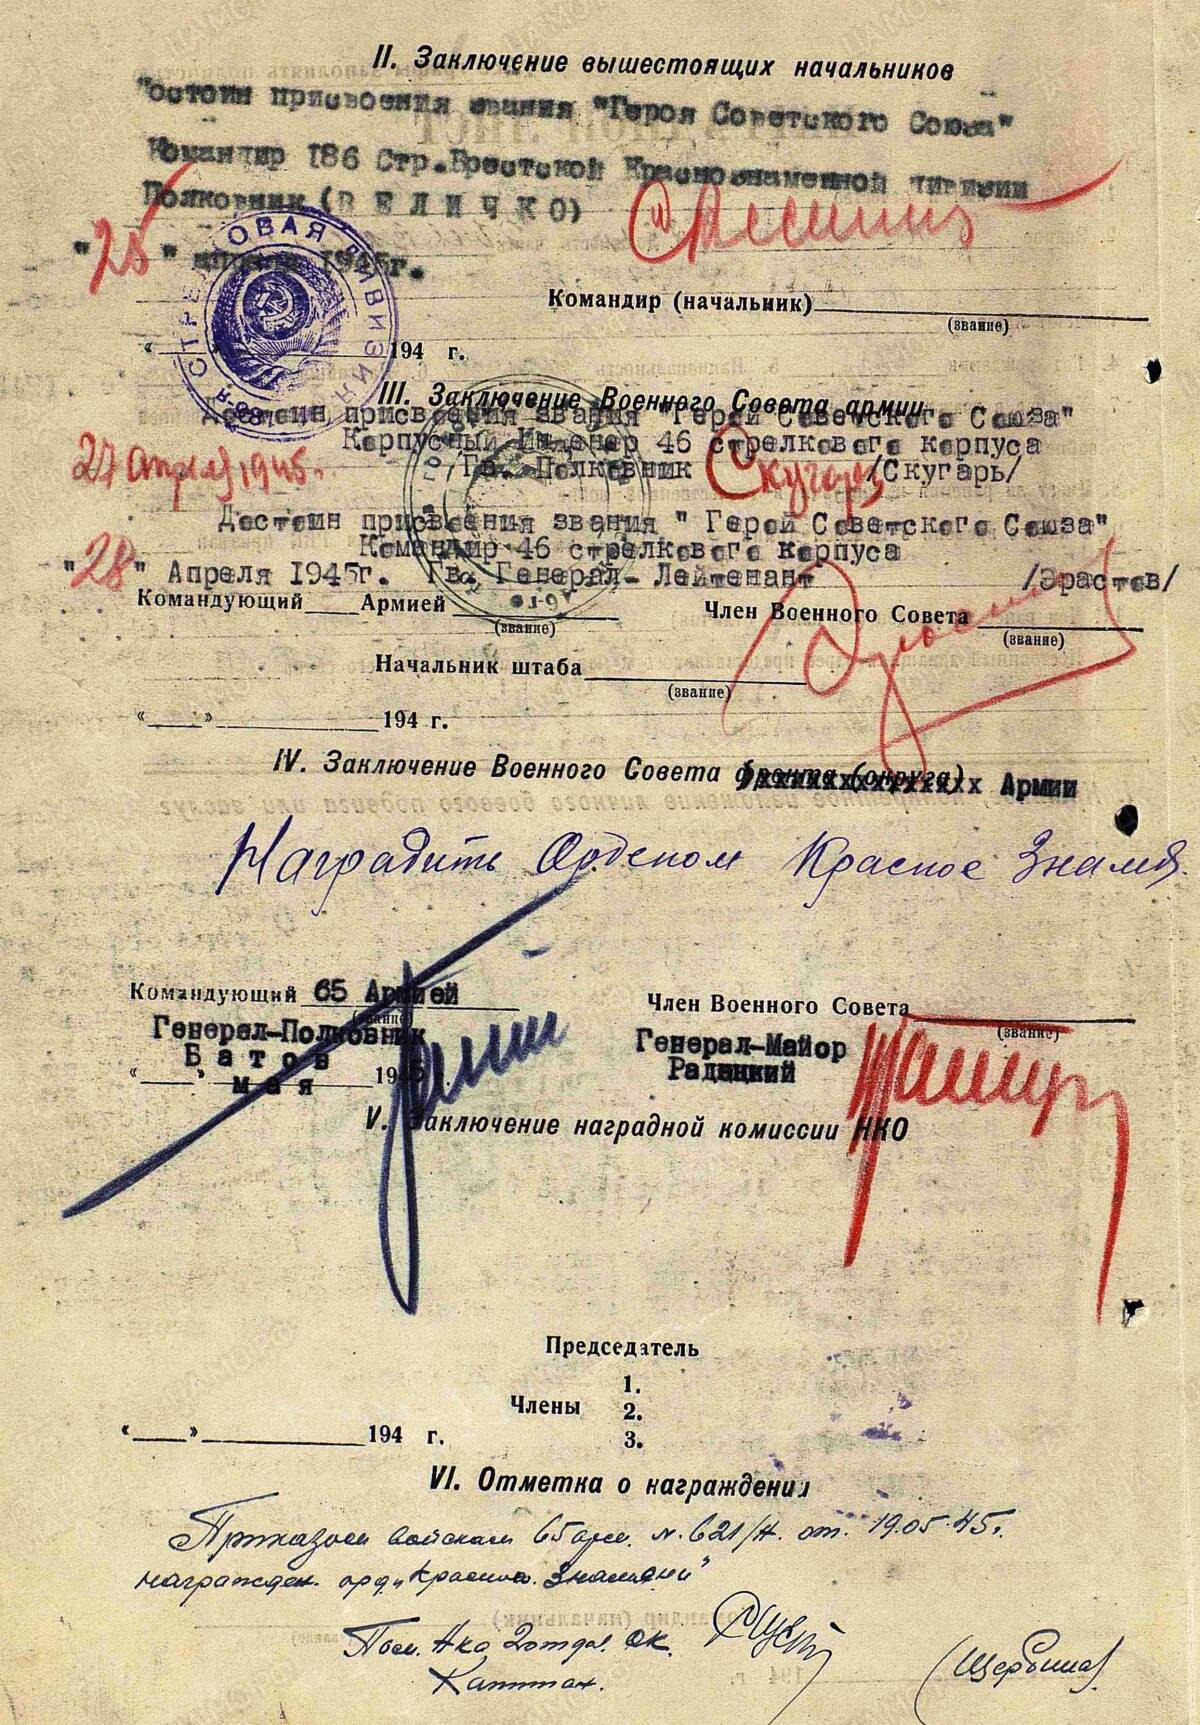 II. Заключение вышестоящих начальников
"остоин присвоения звания "Героя Советского Союза"
Командир 186 Стр.Брестской Краснознаменной дивизии
Полковник (ВЕЛИЧКО)
"25" апреля 1945г.
СТРЕЛКОВАЯ ДИВИЗИЯ
Командир (начальник)
(звание)
"   " 194 г.
III. Заключение Военного Совета армии
Достоин присвоения звания "Герой Советского Союза"
Корпусный Инженер 46 стрелкового корпуса
27 апреля 1945г. Гв. Полковник Скугарь /Скугарь/
Достоин присвоения звания " Герой Советского Союза"
Командир 46 стрелкового корпуса
"28" Апреля 1945г. Гв. Генерал-Лейтенант /Эрастов/
Командующий Армией Член Военного Совета
(звание) (звание)
Начальник штаба
(звание)
«   » 194 г.
IV. Заключение Военного Совета фронта (округа) Армии
Наградить Орденом Красное Знамя.
Командующий 65 Армией Член Военного Совета
(звание) (звание)
Генерал-Полковник Генерал-Майор
Батов Радецкий
«   » мая 194
V. Заключение наградной комиссии НКО
Председатель
1.
Члены 2.
«   » 194 г. 3.
VI. Отметка о награждения
Приказом войскам 65 арм. №. 621/н. от. 19.05.45г.
награжден. орд. „Красного. Знамени"
Пом. Нка 2отдел. ОК.
Капитан. (Щербина).